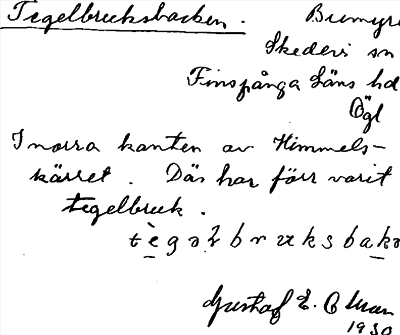 Tegelbruksbacken.
Skedevi sn
Finspånga Läns hd
Ögl
I norra kanten av Himmels-
kärret. Där har förr varit
tegelbruk.
Gustaf E.
1930